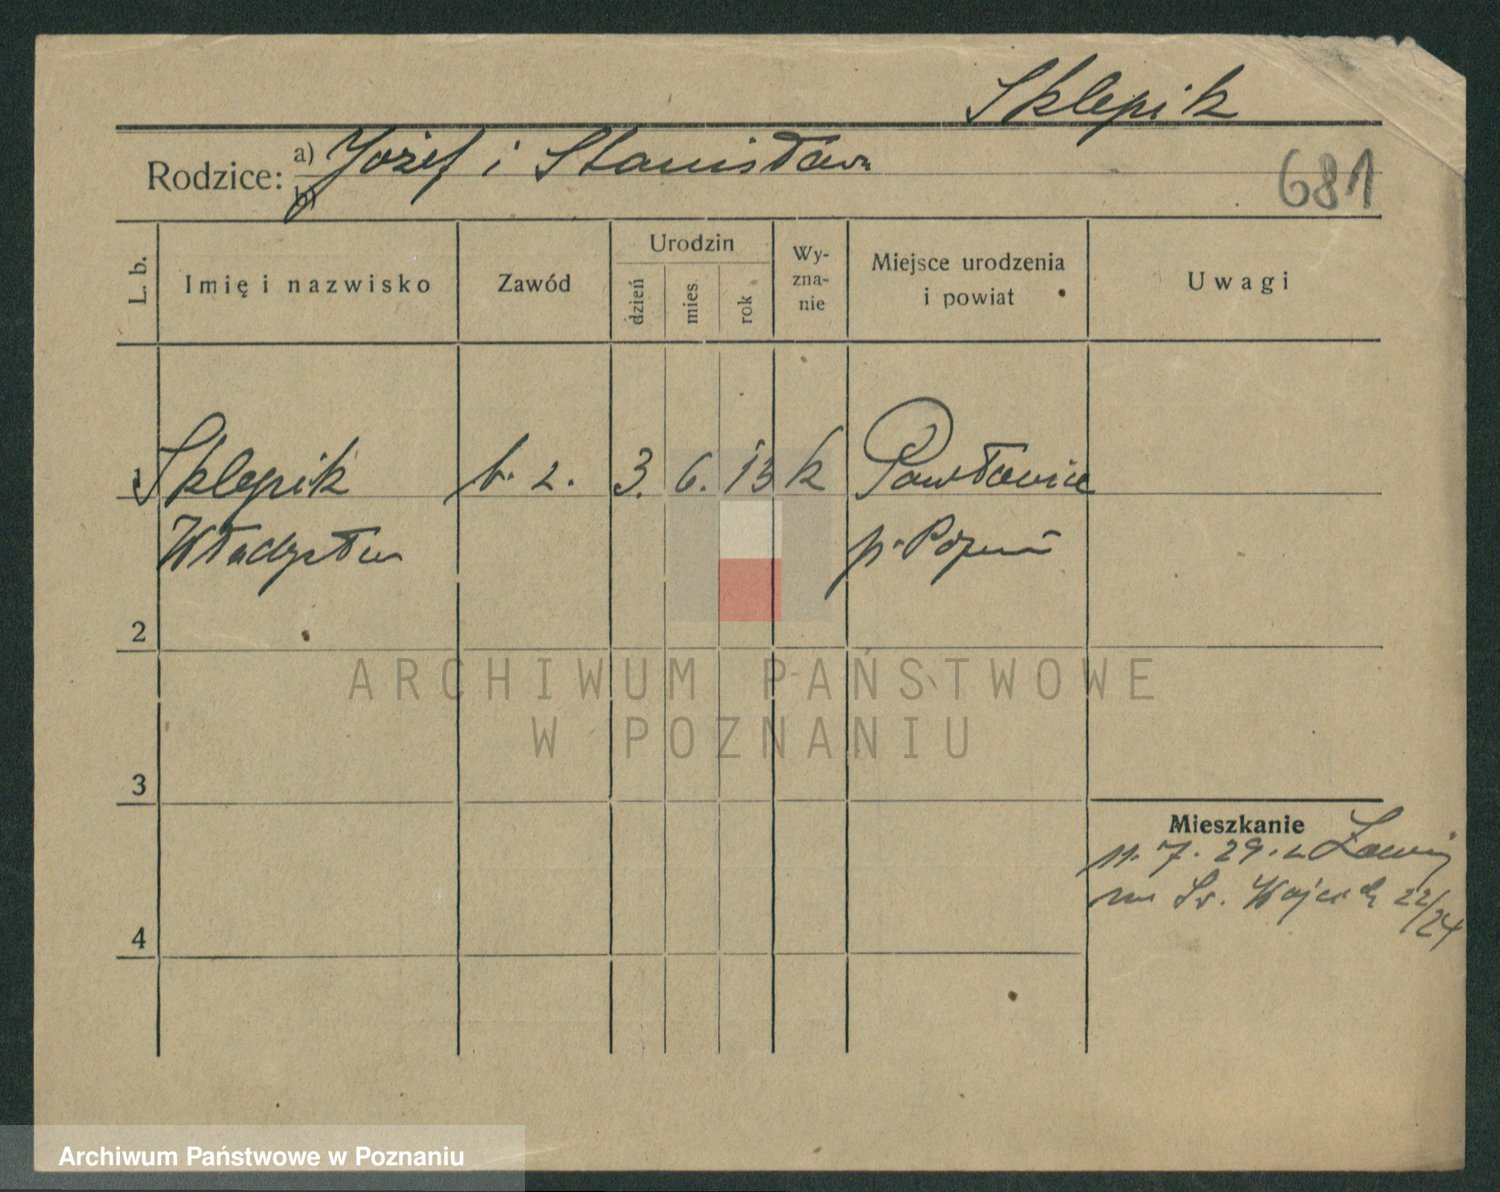 Sklepik
Rodzice: a) Józef i Stanisława
b)
681
L. b.
Imię i nazwisko
Zawód
Urodzin
dzień
mies.
rok
Wy-
zna-
nie
Miejsce urodzenia
i powiat
Uwagi
1 Sklepik b. z. 3. 6. 13 k Pawłowice
Władysław p. Poznań
2
3
4
Mieszkanie
11. 7. 29. z
na Św. Wojciech 22/24
ARCHIWUM PAŃSTWOWE
W POZNANIU
Archiwum Państwowe w Poznaniu